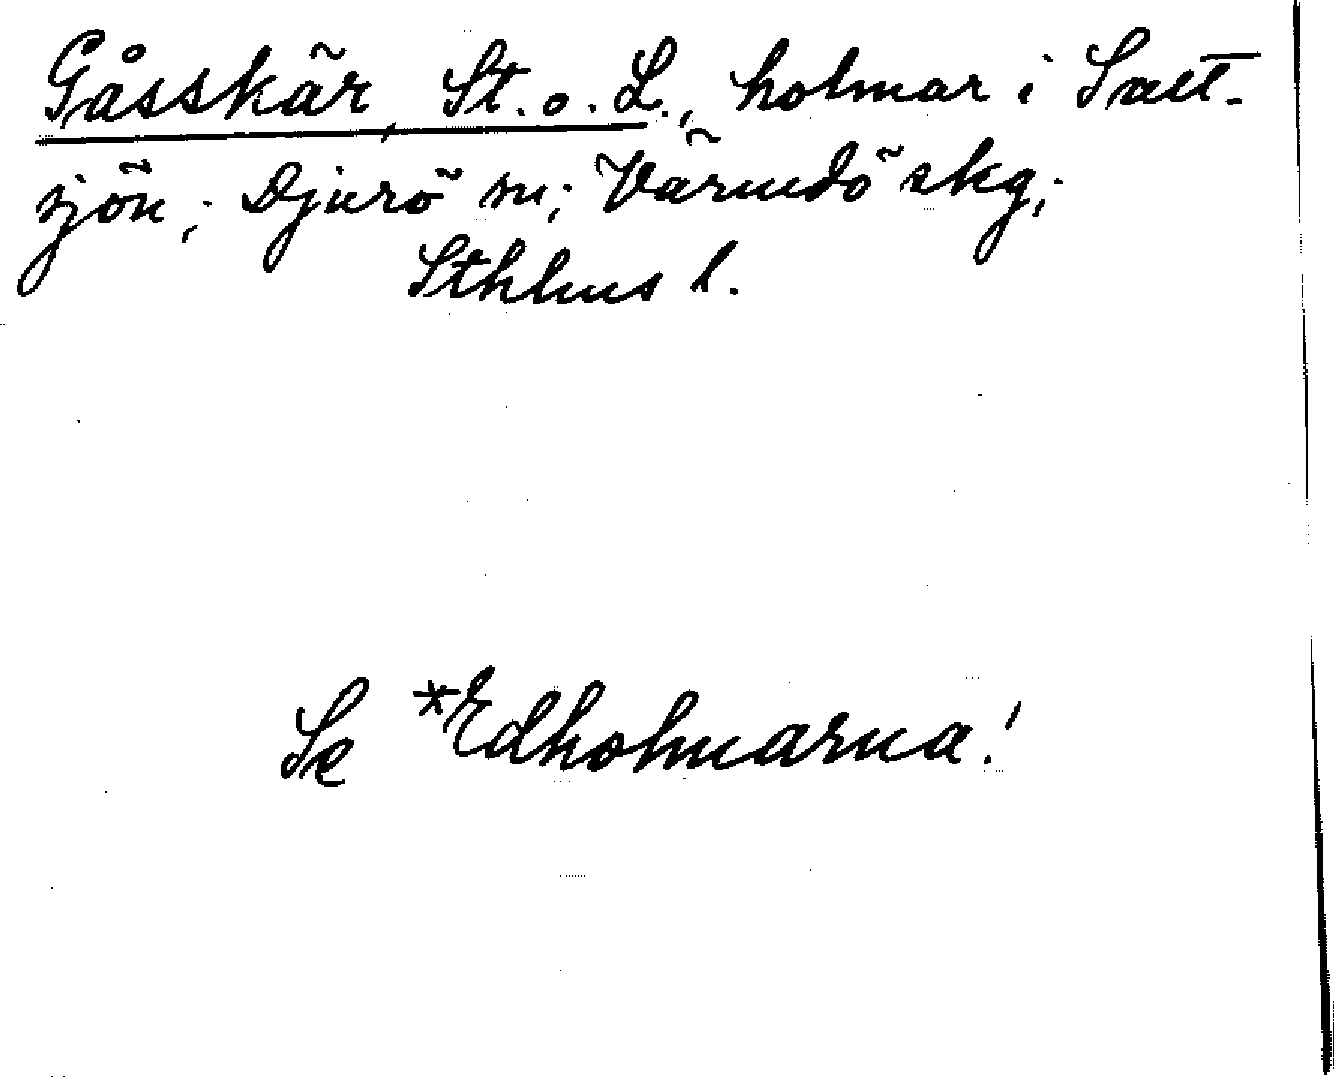 Gåsskär, St. o. L., holmar i Salt-
sjön; Djurö sn; Värmdö skg;
Sthlms l.
Se *Edholmarna!